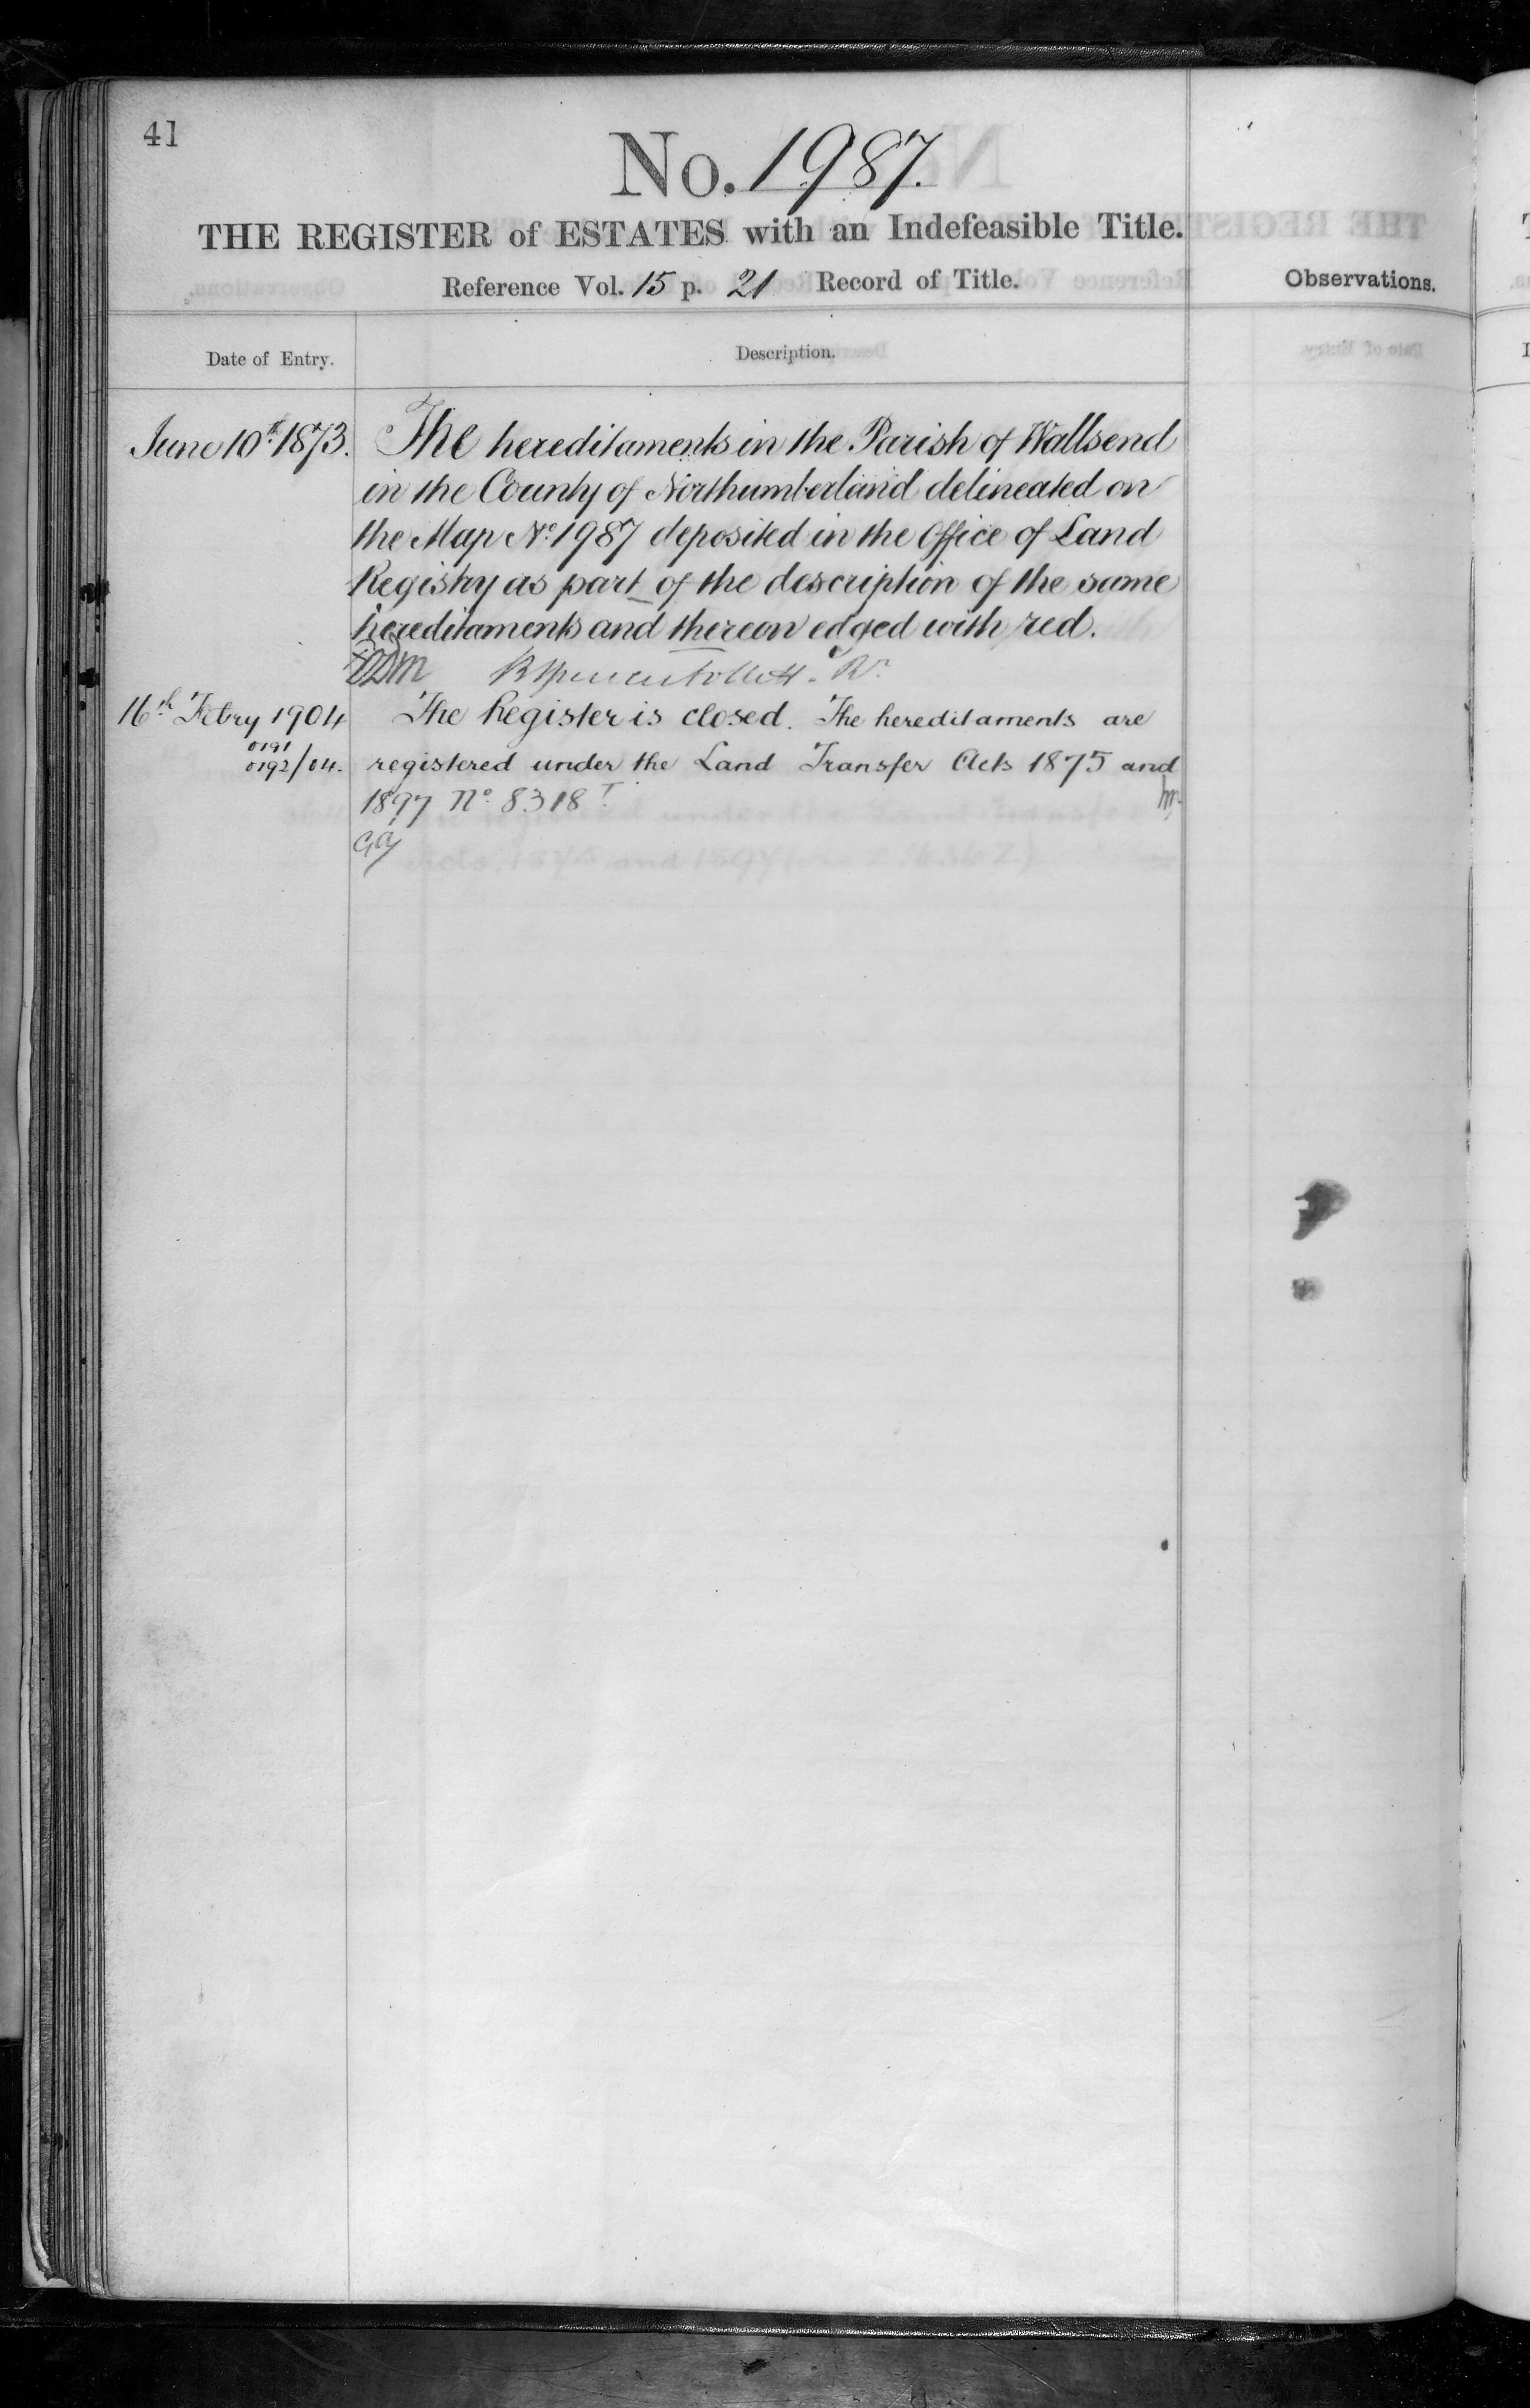 41
No. 1987.
THE REGISTER of ESTATES with an Indefeasible Title.
Reference Vol. 15 p. 21 Record of Title.
Observations.
Date of Entry.
Description.
June 10th 1873.
The hereditaments in the Parish of Wallsend
in the County of Northumberland delineated on
the Map No. 1987 deposited in the Office of Land
Registry as part of the description of the same
hereditaments and thereon edged with red.
16th Febry 1904
The Register is closed. The hereditaments are
0191
0192/04.
registered under the Land Transfer Acts 1875 and
1897 No. 8318 T.